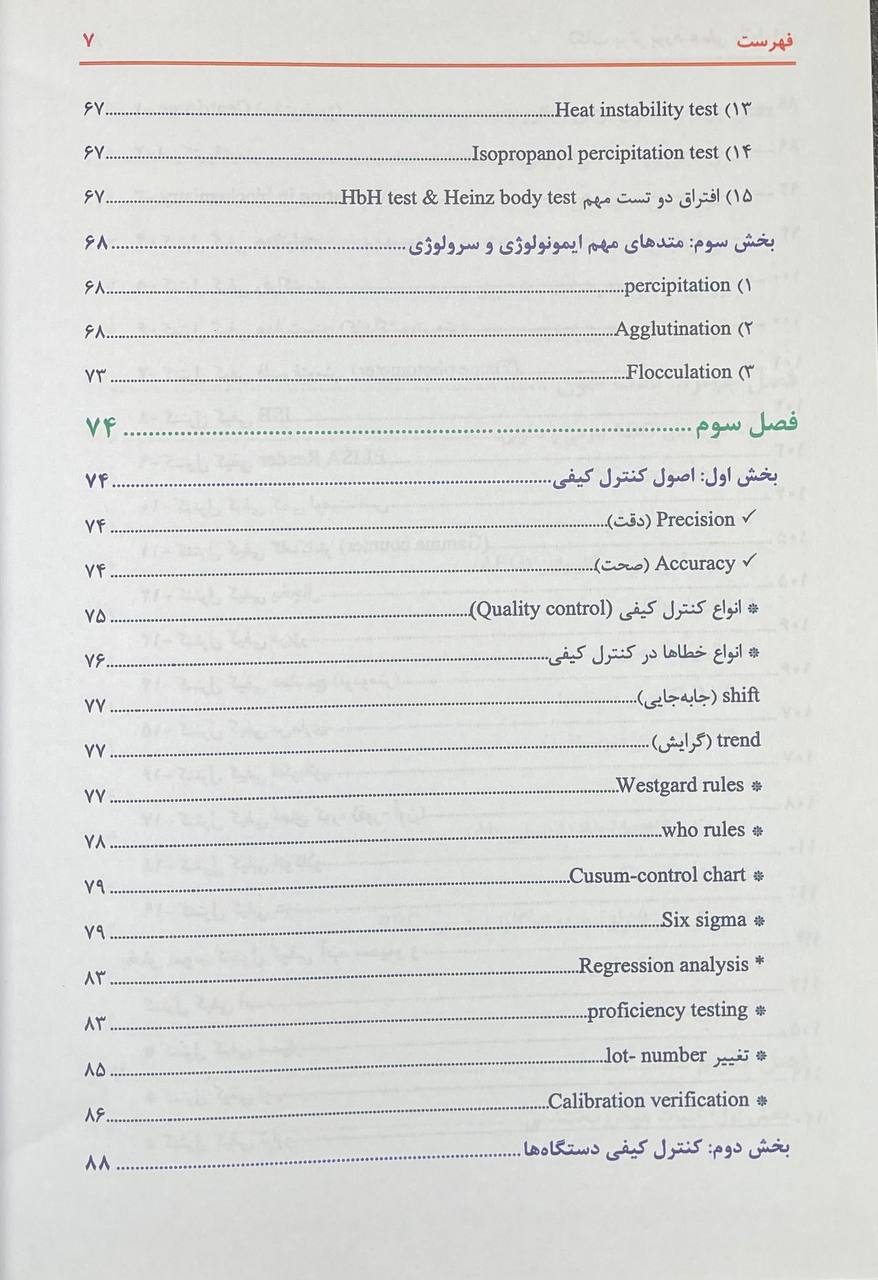 فهرست ۷
۱۳) Heat instability test ۶۷
۱۴) Isopropanol percipitation test ۶۷
۱۵) افتراق دو تست مهم HbH test & Heinz body test ۶۷
بخش سوم: متدهای مهم ایمونولوژی و سرولوژی ۶۸
۱) percipitation ۶۸
۲) Agglutination ۶۸
۳) Flocculation ۷۳
فصل سوم ۷۴
بخش اول: اصول کنترل کیفی ۷۴
✓ Precision (دقت) ۷۴
✓ Accuracy (صحت) ۷۴
* انواع کنترل کیفی (Quality control) ۷۵
* انواع خطاها در کنترل کیفی ۷۶
shift (جابه‌جایی) ۷۷
trend (گرایش) ۷۷
* Westgard rules ۷۷
* who rules ۷۸
* Cusum-control chart ۷۹
* Six sigma ۷۹
* Regression analysis ۸۳
* proficiency testing ۸۳
* تغییر lot- number ۸۵
* Calibration verification ۸۶
بخش دوم: کنترل کیفی دستگاه‌ها ۸۸